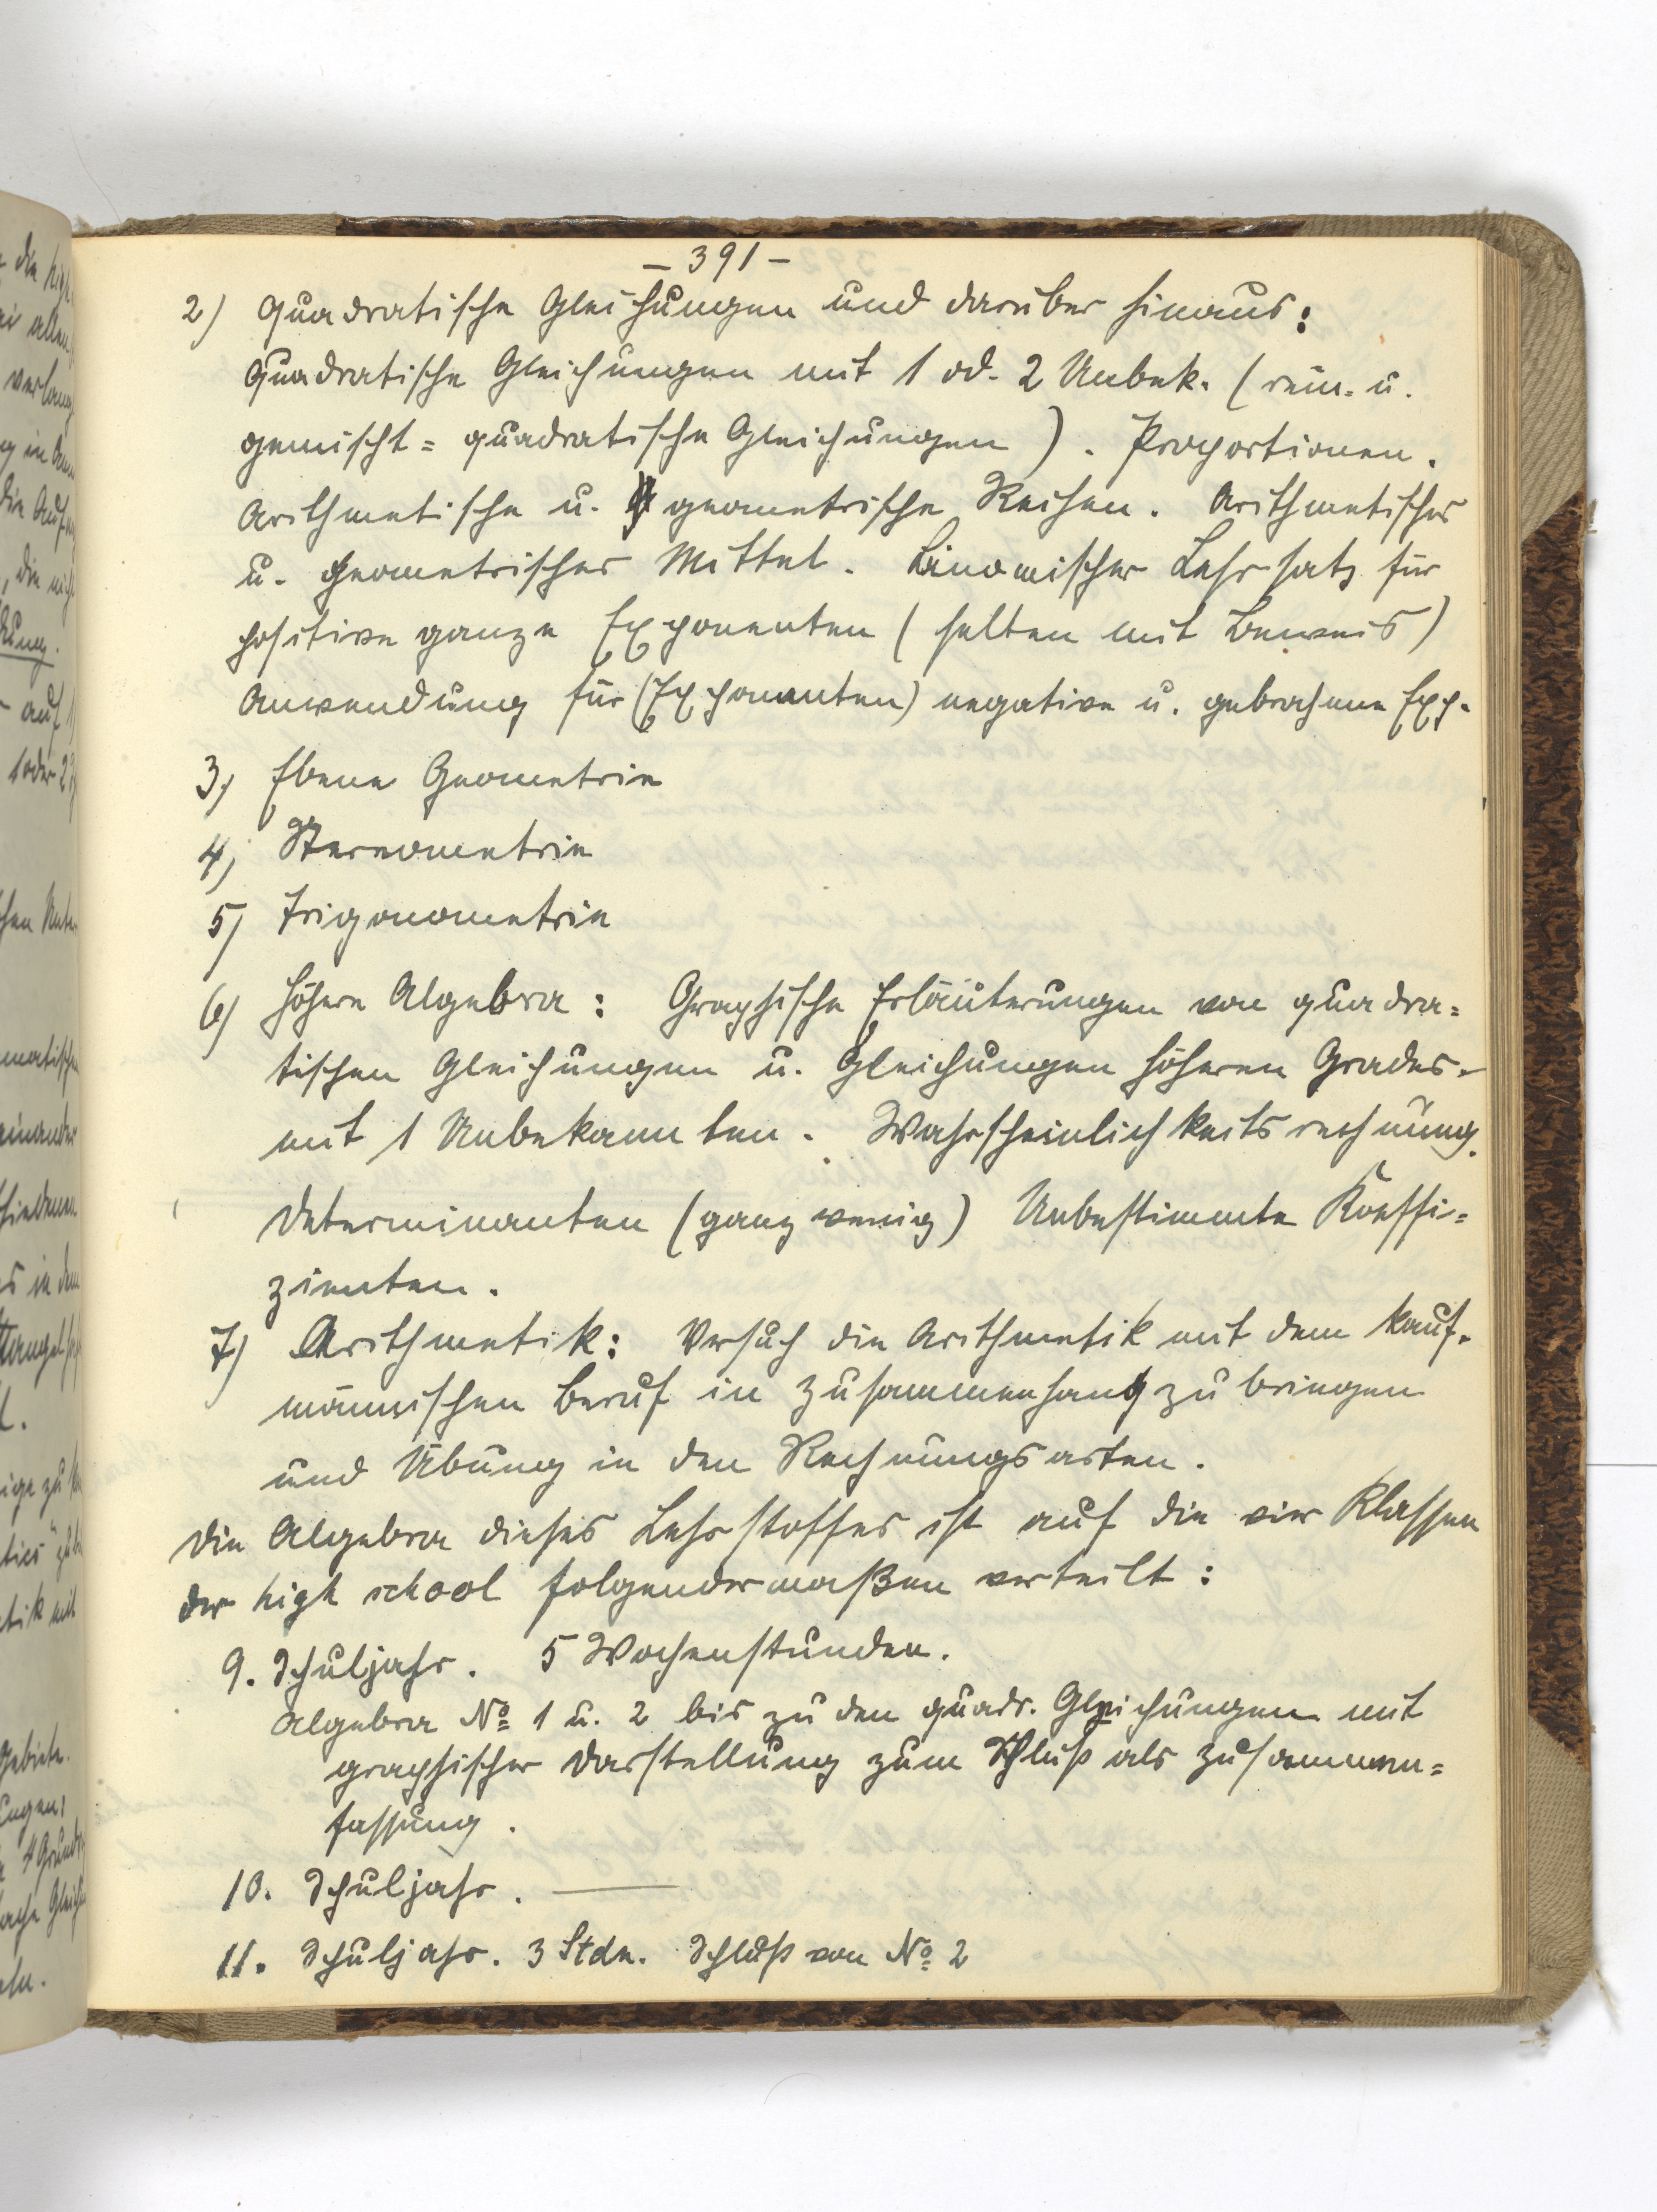 – 391 –
2) Quadratische Gleichungen und darüber hinaus:
Quadratische Gleichungen mit 1 od. 2 Unbek. (rein- u.
gemischt = quadratische Gleichungen). Proportionen.
Arithmetische u. geometrische Reihen. Arithmetisches
u. geometrisches Mittel. Binomischer Lehrsatz für
positive ganze Exponenten (selten mit Beweis)
Anwendung für (Exponenten) negative u. gebrochene Exp.
3) Ebene Geometrie
4) Stereometrie
5) Trigonometrie
6) Höhere Algebra: Graphische Erläuterungen von quadra=
tischen Gleichungen u. Gleichungen höheren Grades
mit 1 Unbekannten. Wahrscheinlichkeitsrechnung.
Determinanten (ganz wenig) Unbestimmte Koeffi=
zienten.
7) Arithmetik: Versuch die Arithmetik mit dem kauf-
männischen Beruf in Zusammenhang zu bringen
und Übung in den Rechnungsarten.
Die Algebra dieses Lehrstoffes ist auf die vier Klassen
der high school folgendermaßen verteilt:
9. Schuljahr. 5 Wochenstunden.
Algebra No 1 u. 2 bis zu den quadr. Gleichungen mit
graphischer Darstellung zum Schluß als Zusammen=
fassung.
10. Schuljahr. —
11. Schuljahr. 3 Stdn. Schluß von No 2